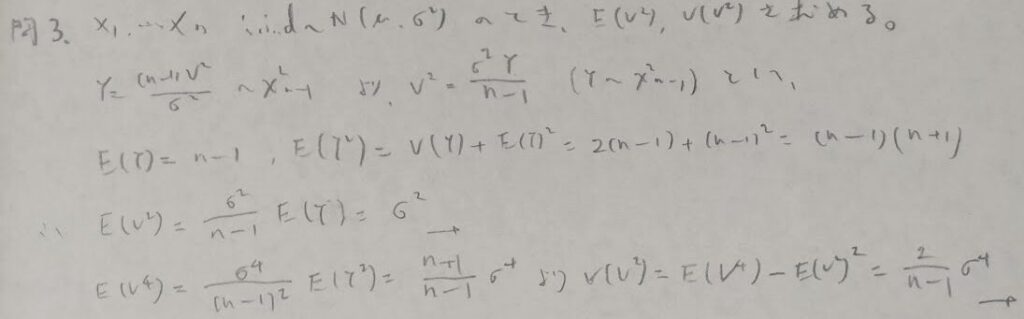 問3. X₁, … Xₙ i.i.d ~ N(μ, σ²) のとき、E(V²), V(V²) を求める。
Y = (n-1)V²/σ² ~ χ²ₙ₋₁ より、V² = σ²Y/(n-1) (Y ~ χ²ₙ₋₁) といい、
E(Y) = n-1, E(Y²) = V(Y) + E(Y)² = 2(n-1) + (n-1)² = (n-1)(n+1)
∴ E(V²) = σ²/(n-1) E(Y) = σ² →
E(V⁴) = σ⁴/(n-1)² E(Y²) = (n+1)/(n-1) σ⁴ より V(V²) = E(V⁴) - E(V²)² = 2/(n-1) σ⁴ →